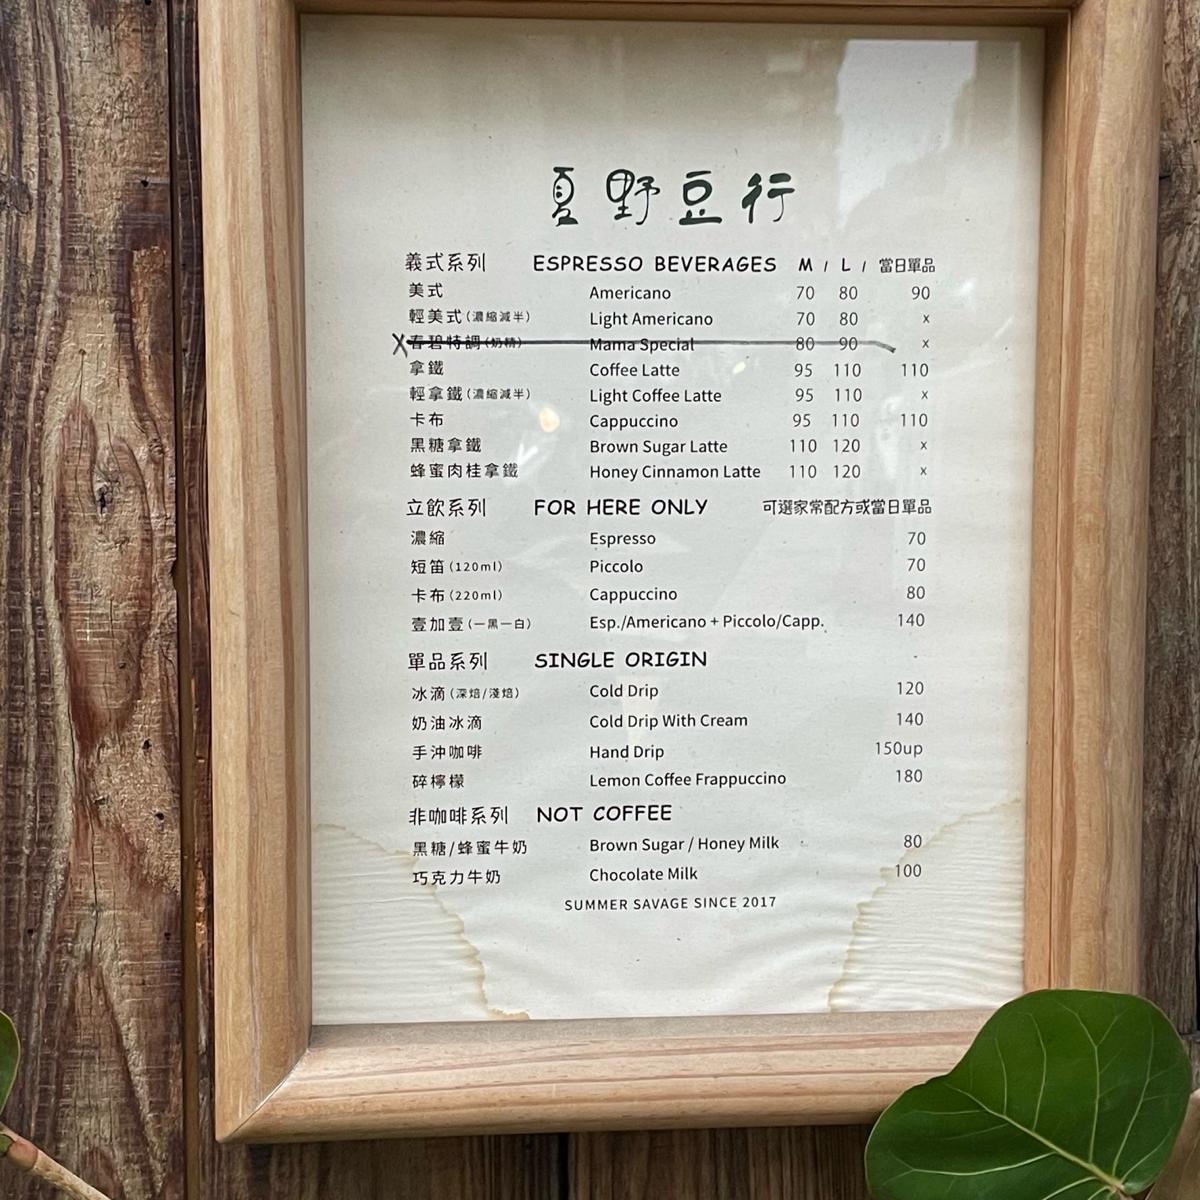 夏野豆行
義式系列 ESPRESSO BEVERAGES M / L / 當日單品
美式 Americano 70 80 90
輕美式(濃縮減半) Light Americano 70 80 x
X春碧特調(奶精) Mama Special 80 90 x
拿鐵 Coffee Latte 95 110 110
輕拿鐵(濃縮減半) Light Coffee Latte 95 110 x
卡布 Cappuccino 95 110 110
黑糖拿鐵 Brown Sugar Latte 110 120 x
蜂蜜肉桂拿鐵 Honey Cinnamon Latte 110 120 x
立飲系列 FOR HERE ONLY 可選家常配方或當日單品
濃縮 Espresso 70
短笛(120ml) Piccolo 70
卡布(220ml) Cappuccino 80
壹加壹(一黑一白) Esp./Americano + Piccolo/Capp. 140
單品系列 SINGLE ORIGIN
冰滴(深焙/淺焙) Cold Drip 120
奶油冰滴 Cold Drip With Cream 140
手沖咖啡 Hand Drip 150up
碎檸檬 Lemon Coffee Frappuccino 180
非咖啡系列 NOT COFFEE
黑糖/蜂蜜牛奶 Brown Sugar / Honey Milk 80
巧克力牛奶 Chocolate Milk 100
SUMMER SAVAGE SINCE 2017